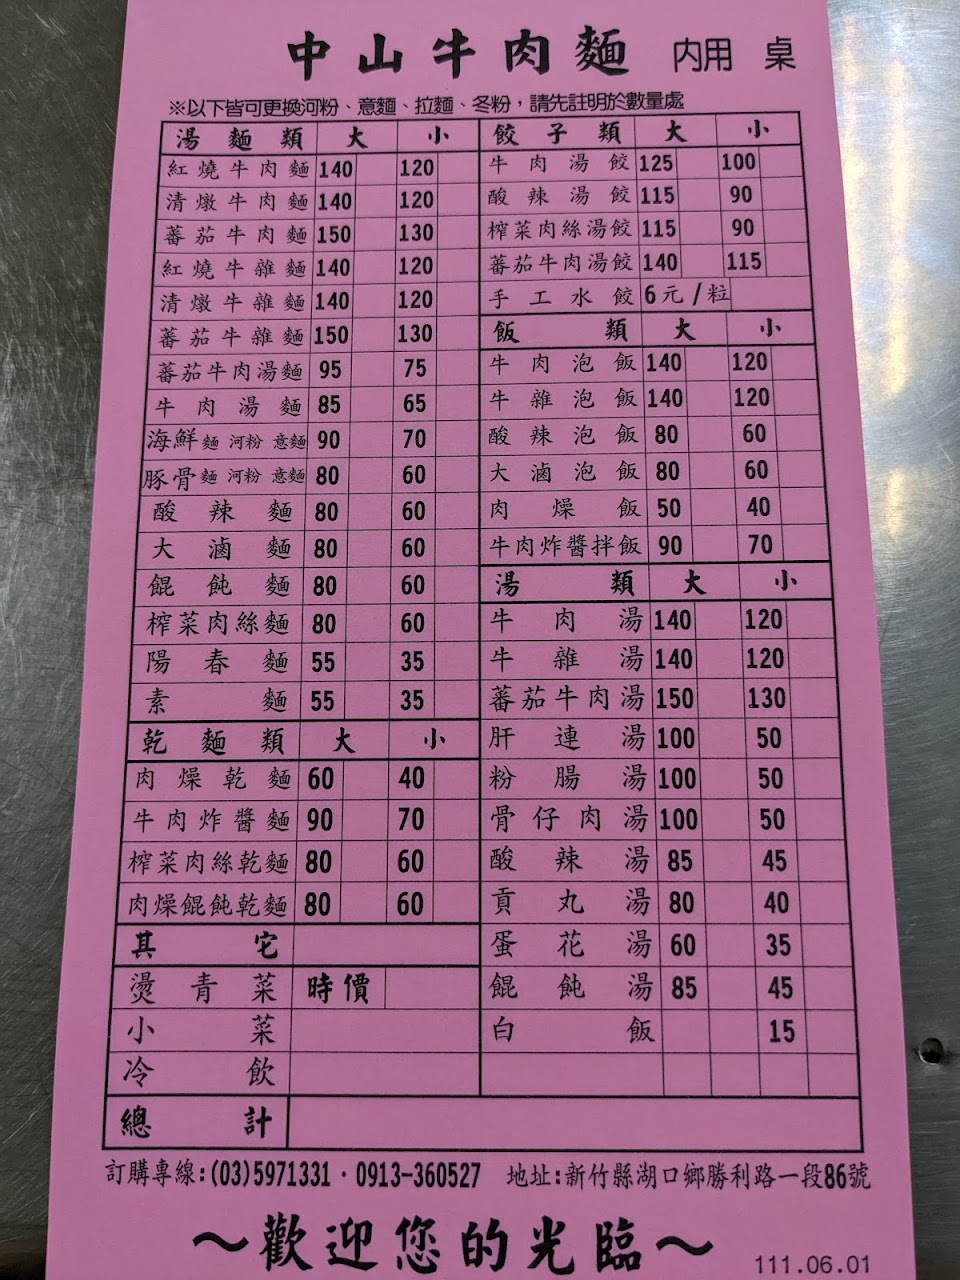 中山牛肉麵 內用 桌
※以下皆可更換河粉、意麵、拉麵、冬粉，請先註明於數量處
湯麵類 大 小
紅燒牛肉麵 140 120
清燉牛肉麵 140 120
蕃茄牛肉麵 150 130
紅燒牛雜麵 140 120
清燉牛雜麵 140 120
蕃茄牛雜麵 150 130
蕃茄牛肉湯麵 95 75
牛肉湯麵 85 65
海鮮麵 河粉 意麵 90 70
豚骨麵 河粉 意麵 80 60
酸辣麵 80 60
大滷麵 80 60
餛飩麵 80 60
榨菜肉絲麵 80 60
陽春麵 55 35
素麵 55 35
乾麵類 大 小
肉燥乾麵 60 40
牛肉炸醬麵 90 70
榨菜肉絲乾麵 80 60
肉燥餛飩乾麵 80 60
其它
燙青菜 時價
小菜
冷飲
總計
餃子類 大 小
牛肉湯餃 125 100
酸辣湯餃 115 90
榨菜肉絲湯餃 115 90
蕃茄牛肉湯餃 140 115
手工水餃 6元/粒
飯類 大 小
牛肉泡飯 140 120
牛雜泡飯 140 120
酸辣泡飯 80 60
大滷泡飯 80 60
肉燥飯 50 40
牛肉炸醬拌飯 90 70
湯類 大 小
牛肉湯 140 120
牛雜湯 140 120
蕃茄牛肉湯 150 130
肝連湯 100 50
粉腸湯 100 50
骨仔肉湯 100 50
酸辣湯 85 45
貢丸湯 80 40
蛋花湯 60 35
餛飩湯 85 45
白飯 15
訂購專線:(03)5971331·0913-360527 地址:新竹縣湖口鄉勝利路一段86號
～歡迎您的光臨～
111.06.01